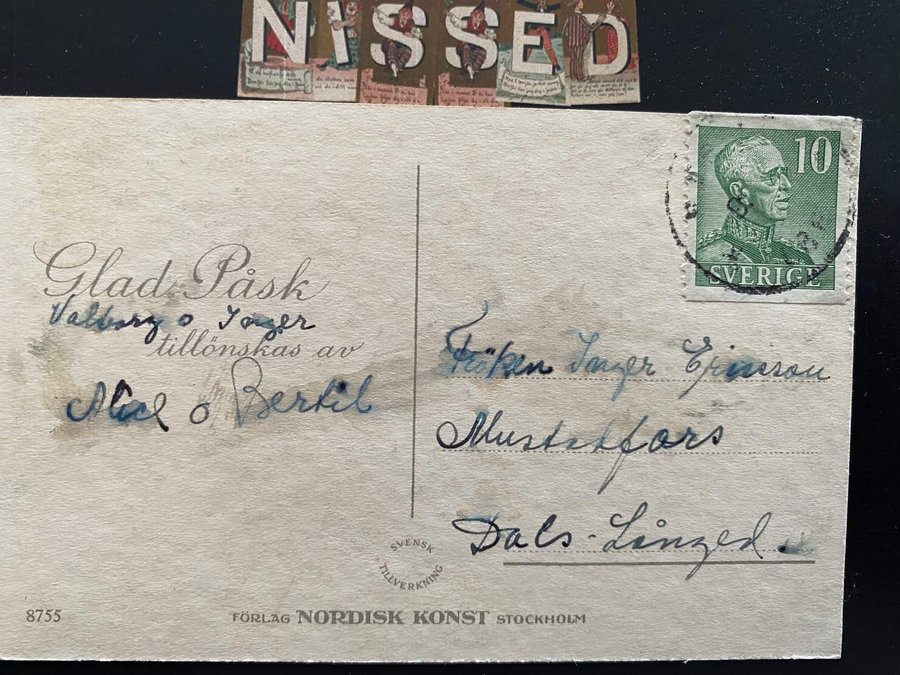 NISSED
10
SVERIGE
Glad Påsk
Valborg o Inger
tillönskas av
Alice o Bertil
Fröken Inger Ericsson
Mustadfors
Dals-Långed
SVENSK
TILLVERKNING
8755 FÖRLAG NORDISK KONST STOCKHOLM